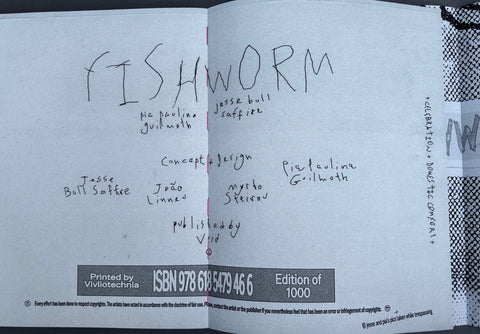 FISHWORM
pia paulina
guilmoth
jesse bull
saffire
concept + design
Jesse
Bull Saffire
João
Linneu
Myrto
Steirou
Pia Paulina
Guilmoth
published by
Void
Printed by
Vivliotechnia
ISBN 978 618 5479 46 6
Edition of
1000
Every effort has been done to respect copyrights. The artists have acted in accordance with the doctrine of fair use. Please, contact the artist or the publisher if you nevertheless feel that has been an error or infringement of copyrights.
© jesse and pia's pics taken while trespassing
CELEBRATION + DOMESTIC COMFORT +